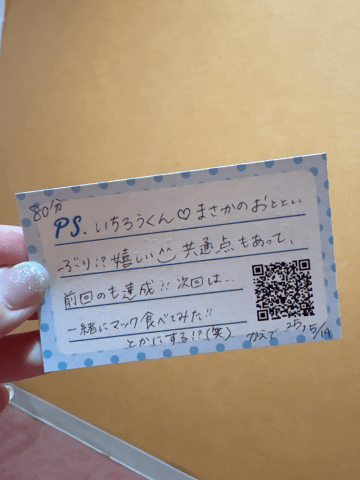 80分
PS. いちろうくん♡まさかのおととい
ぶり!? 嬉しい^^ 共通点もあって、
前回のも達成!! 次回は...
一緒にマック食べてみた!!
とかにする!?(笑) かえで 25,5/19